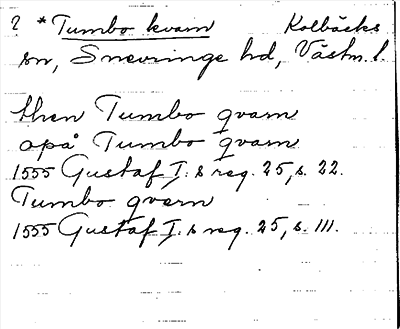 ? *Tumbo kvarn Kolbäcks
sn, Snevringe hd, Västm. l.
then Tumbo qvarn
opå Tumbo qvarn
1555 Gustaf I:s reg. 25, s. 22.
Tumbo qvern
1555 Gustaf I:s reg. 25, s. 111.